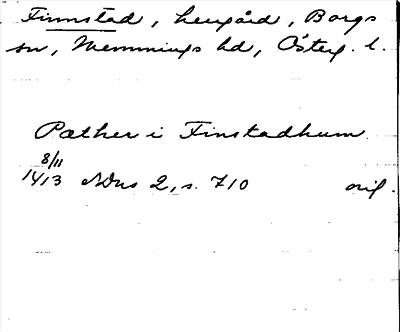 Finnstad, herrgård, Borgs
sn, Memmings hd, Österg. l.
Pæther i Finstadhum
8/11
1413 SDns 2, s. 710 orig.